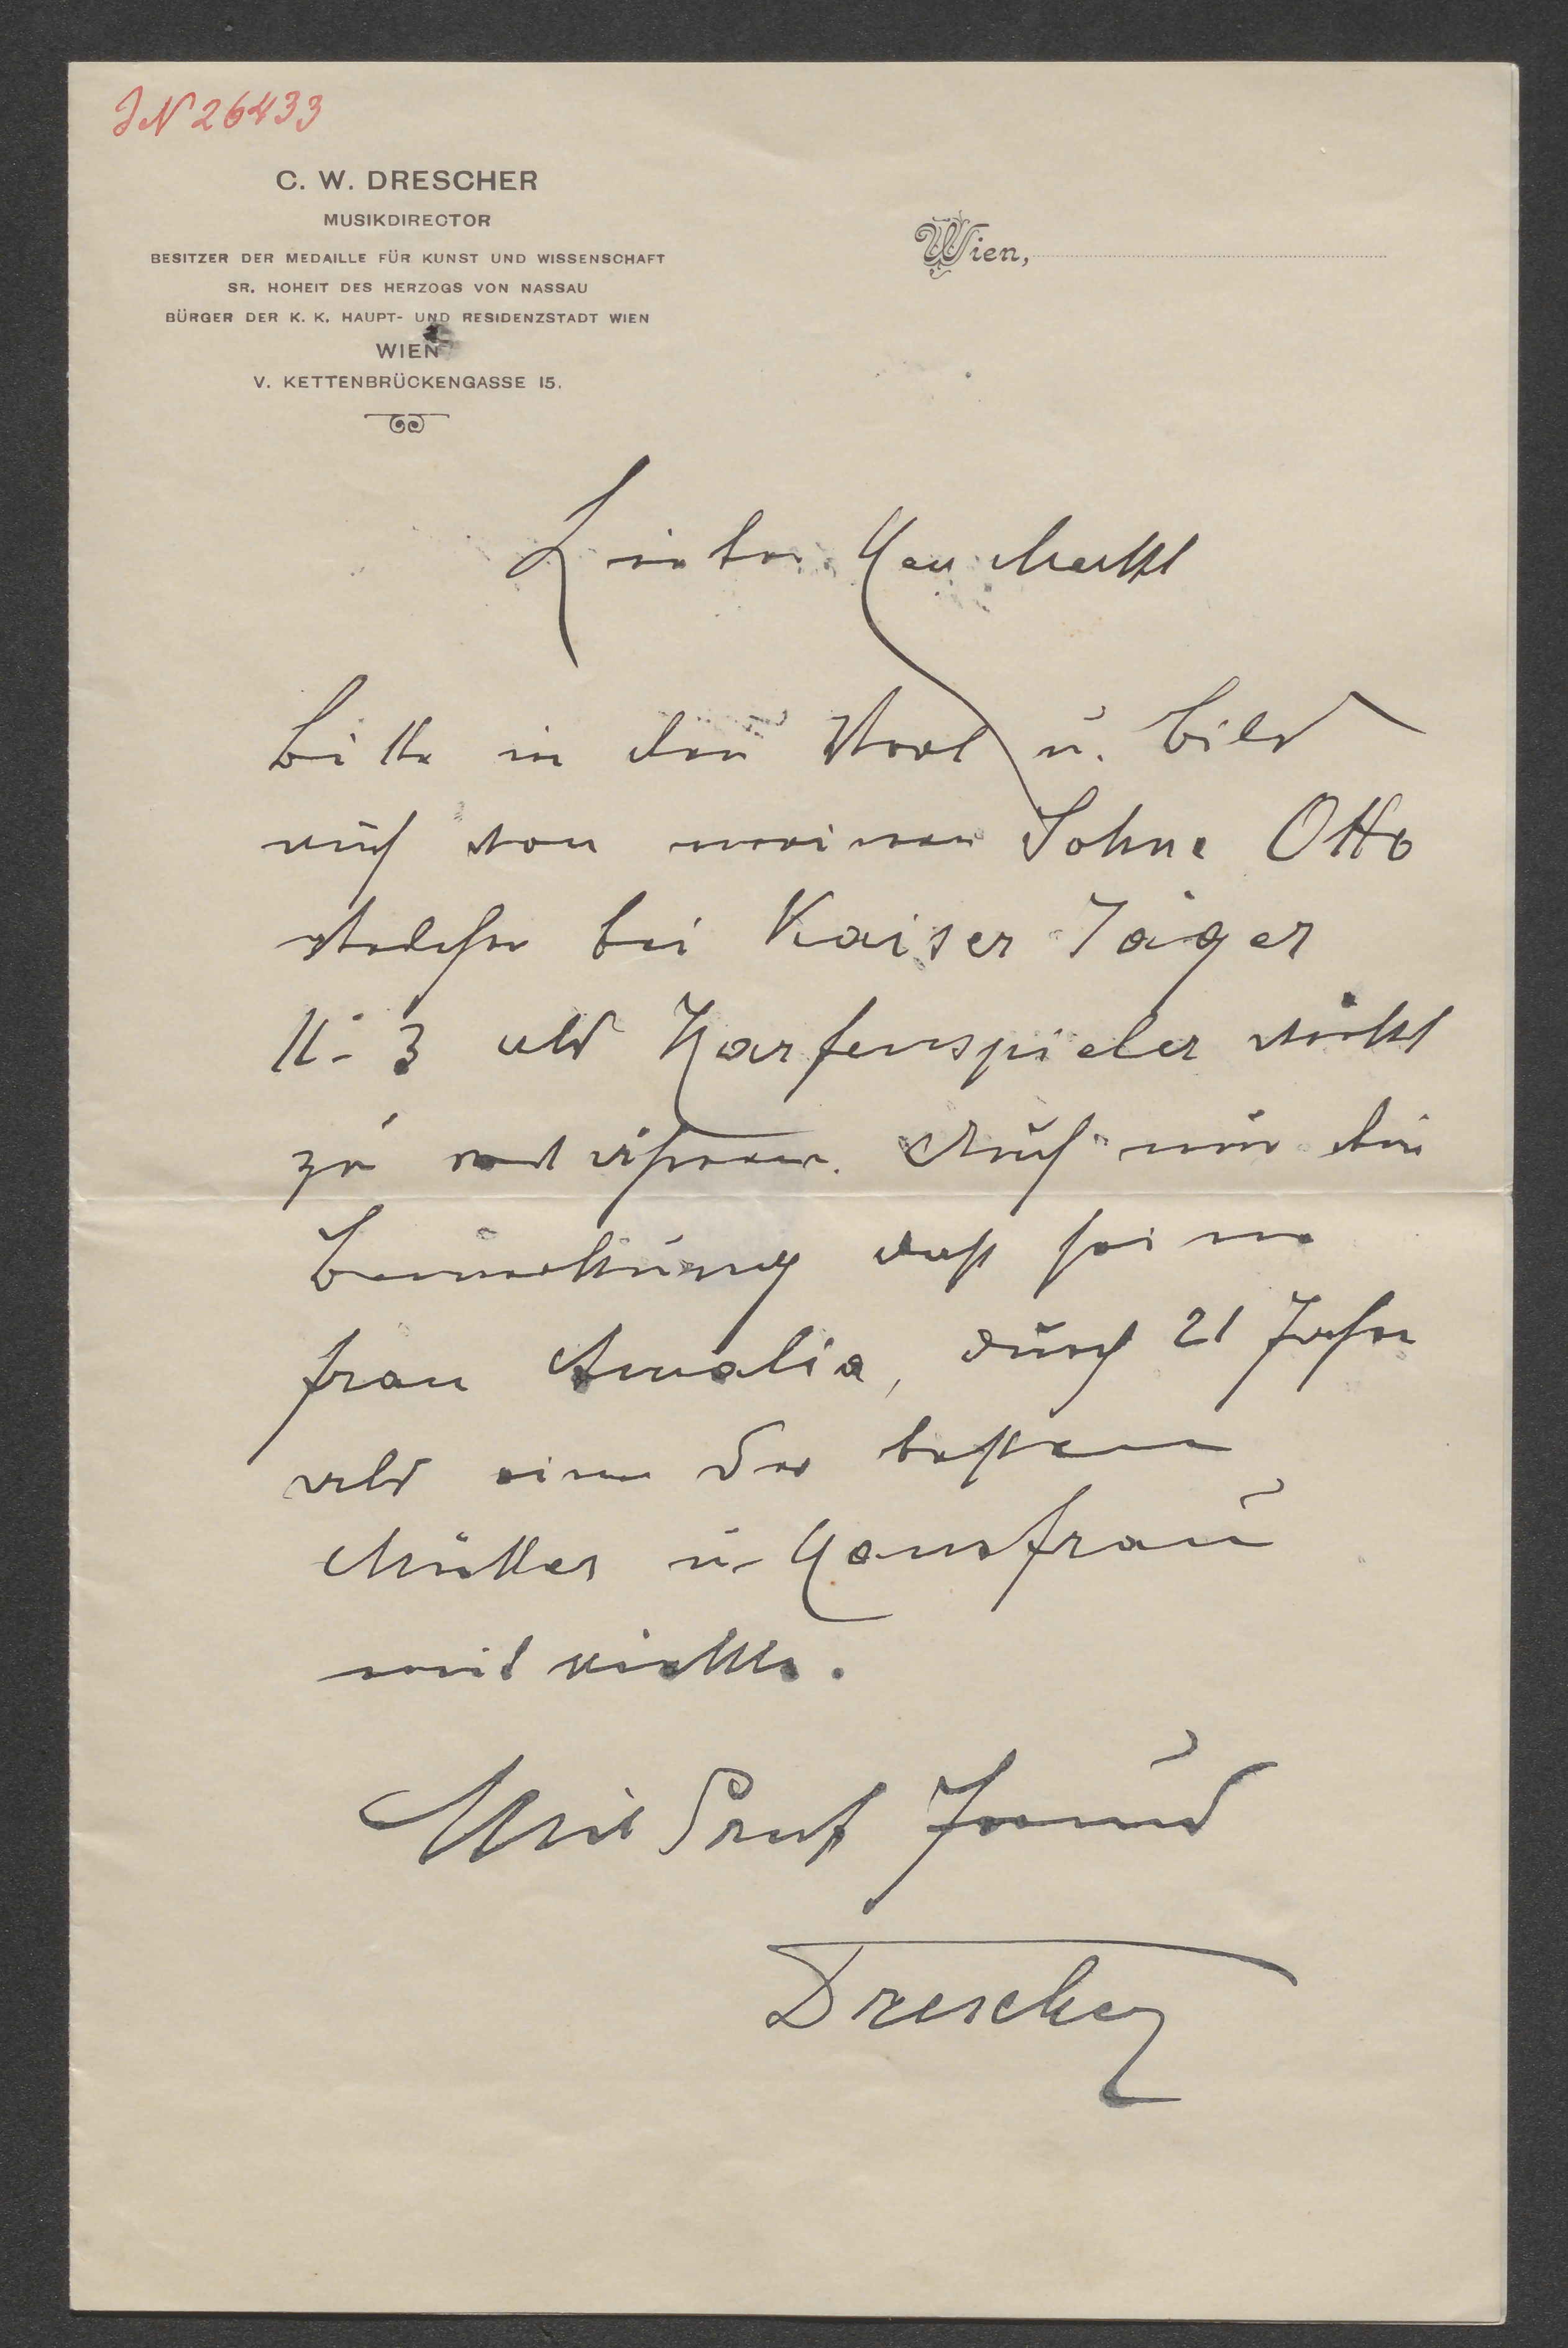 JN 26433
C. W. DRESCHER
MUSIKDIRECTOR
BESITZER DER MEDAILLE FÜR KUNST UND WISSENSCHAFT
SR. HOHEIT DES HERZOGS VON NASSAU
BÜRGER DER K. K. HAUPT- UND RESIDENZSTADT WIEN
WIEN
V. KETTENBRÜCKENGASSE 15.
Wien,
Lieber Herr
bitte in den Wort u. Bild
auch von meinem Sohne Otto
welcher bei Kaiser Jäger
N- 3 als Harfenspieler wirkt
zu Auch nur die
Bemerkung daß seine
Frau Amalia, durch 21 Jahre
als eine der besten
Mutter u- Hausfrau
mit wirkte.
Mit Dank
Drescher